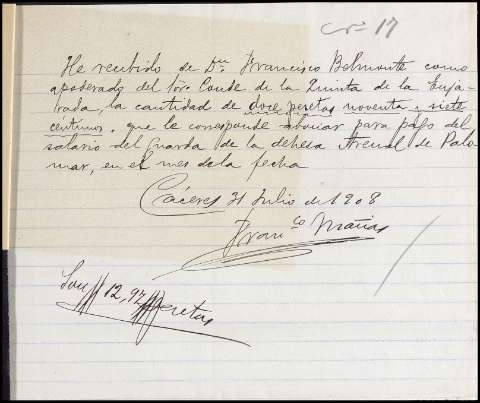 nº 17
He recibido de Dn Francisco Belmonte como
apoderado del Sor. Conde de la Quinta de la Enja-
rada, la cantidad de doce pesetas noventa y siete
céntimos, que le corresponde abonar para pago del
salario del Guarda de la dehesa Arenal de Palo-
mar, en el mes de la fecha
Cáceres 31 Julio de 1908
Franco Mañas
Son 12,97 pesetas